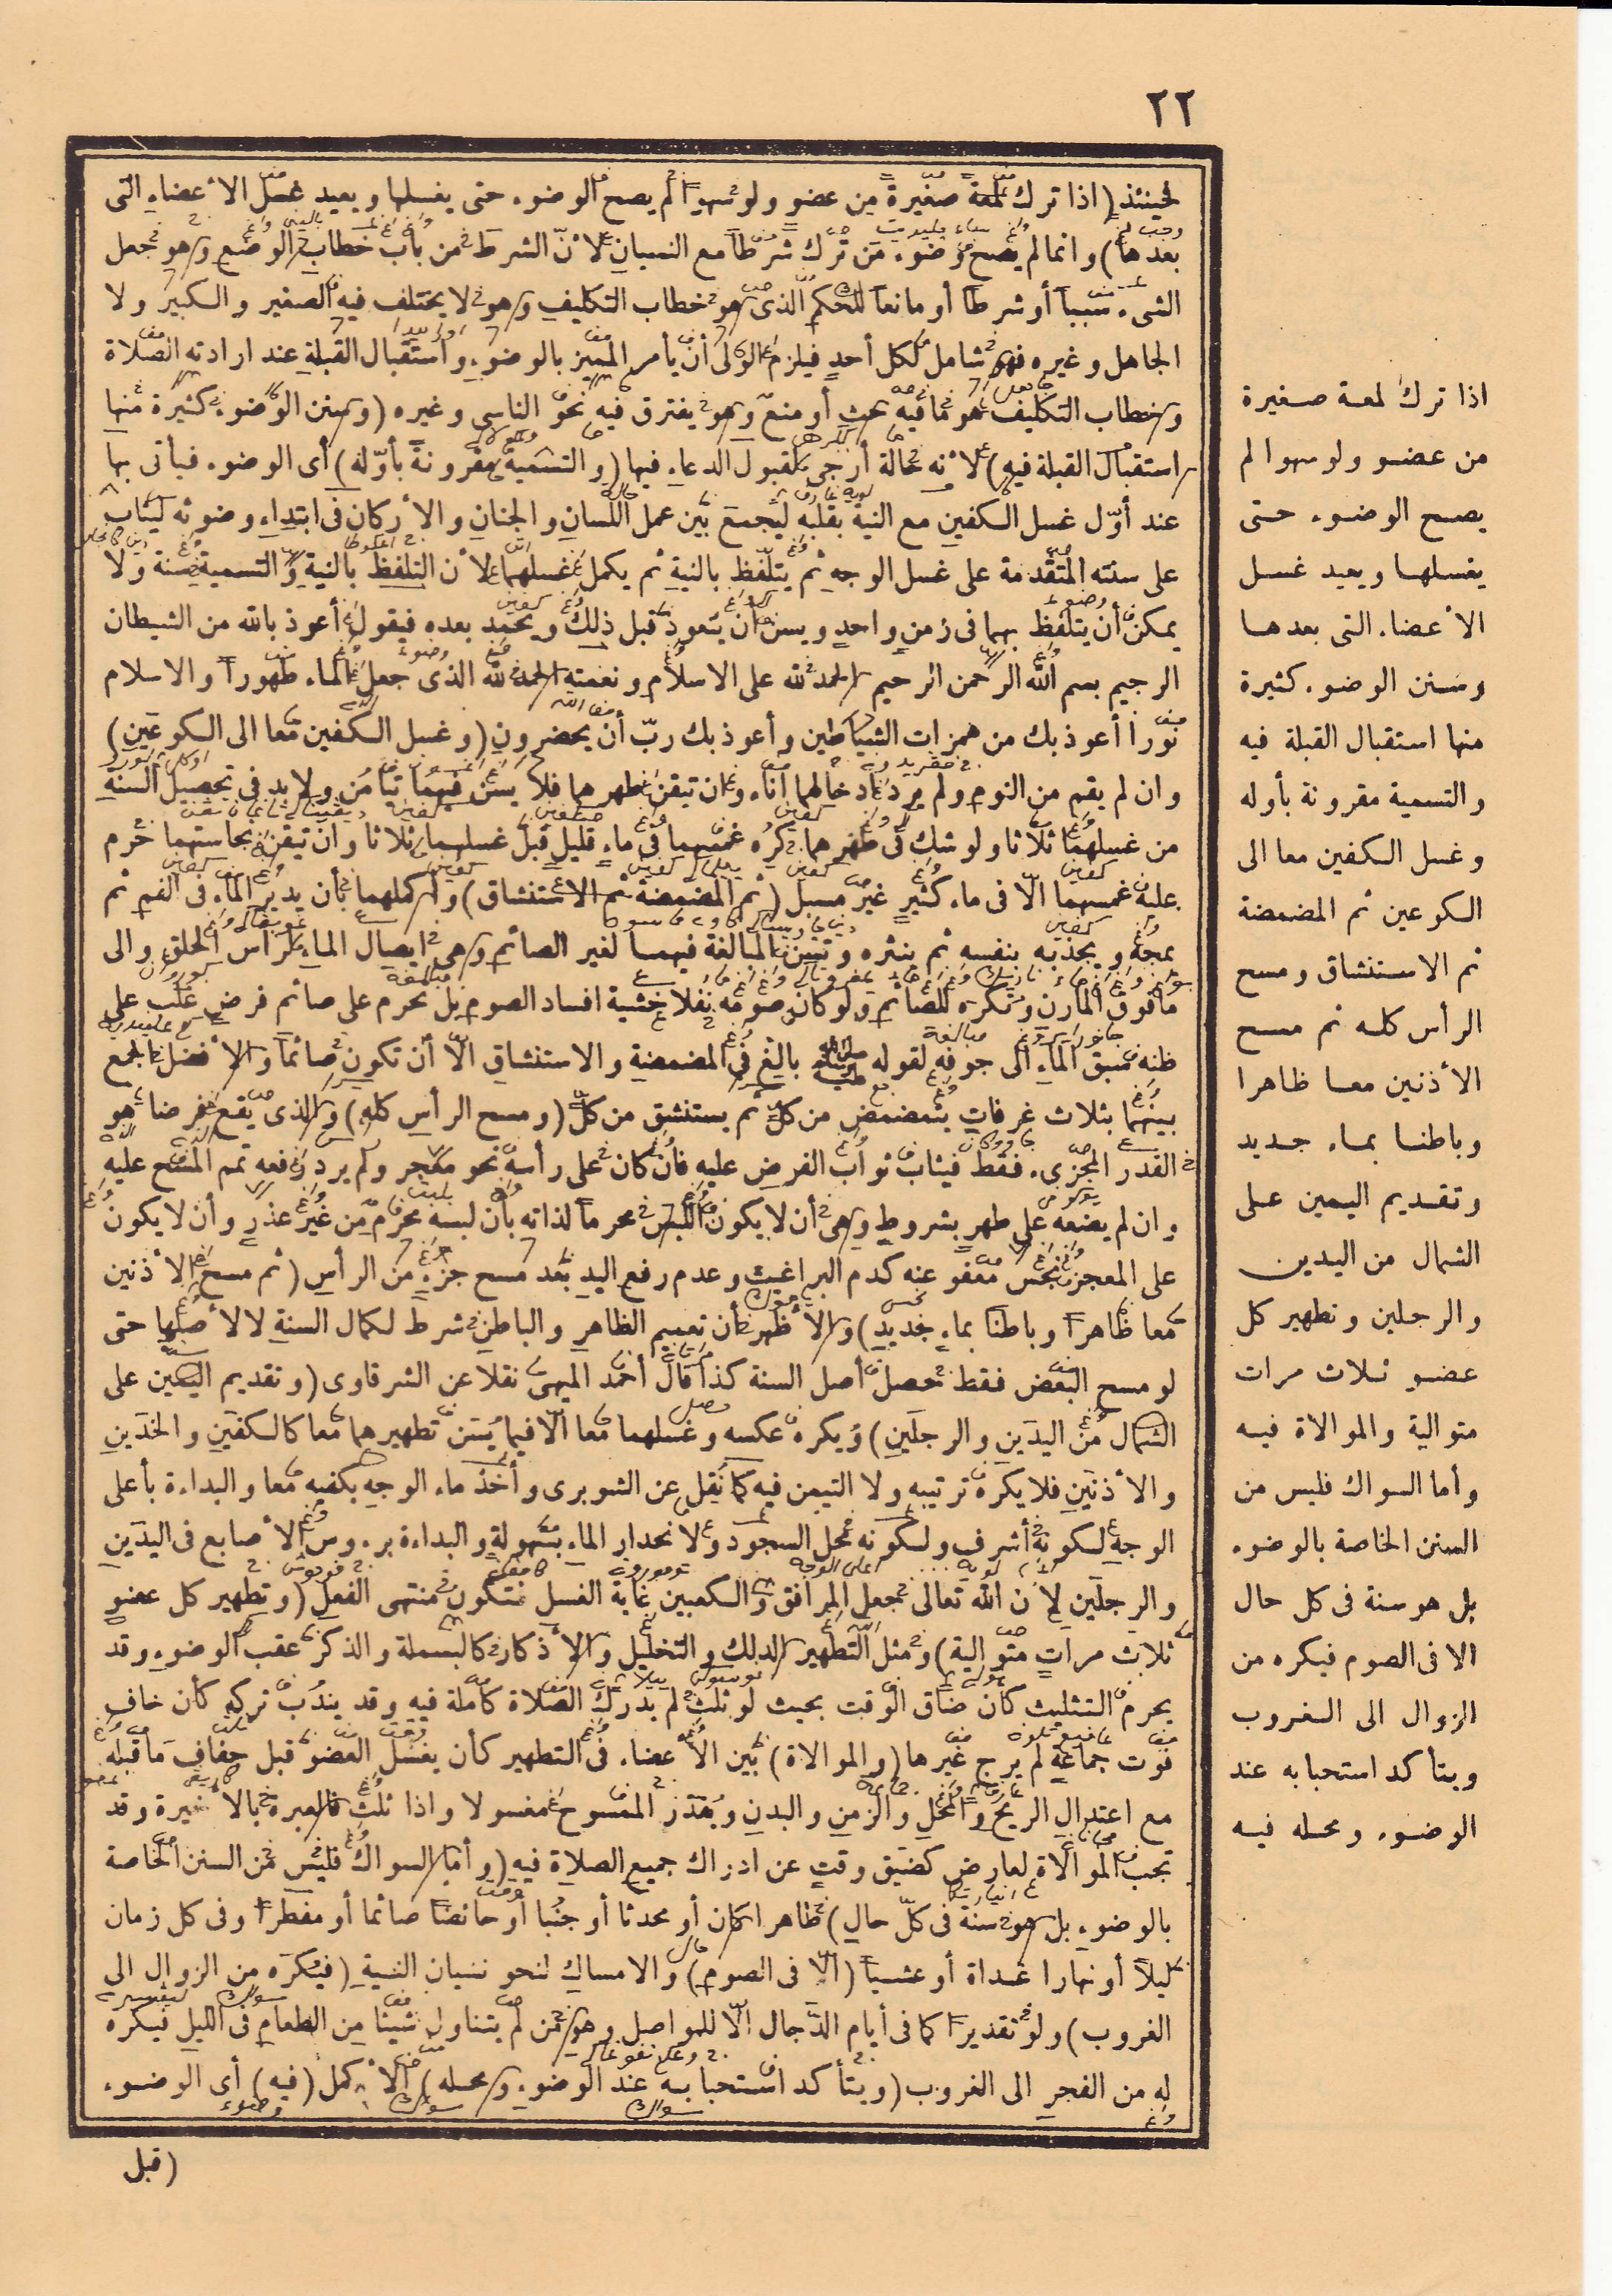 ٢٢
فحينئذ (اذا ترك لمعة صغيرة من عضو ولو سهوا لم يصح الوضوء حتى يغسلها ويعيد غسل الأعضاء التى
بعدها) وانما لم يصح وضوء من ترك شرطا مع النسيان لأنّ الشرط من باب خطاب الوضع وهو جعل
الشىء سببا أو شرطا أو مانعا للحكم الذى هو خطاب التكليف وهو لا يختلف فيه الصغير والكبير ولا
الجاهل وغيره فهو شامل لكل أحد فيلزم الولى أن يأمر المميز بالوضوء واستقبال القبلة عند ارادته الصلاة
وخطاب التكليف هو ما فيه حث أو منع وهو يفترق فيه نحو الناسى وغيره (وسنن الوضوء كثيرة منها
استقبال القبلة فيه) لأنه حالة أرجى لقبول الدعاء فيها (والتسمية مقرونة بأوّله) أى الوضوء فيأتى بها
عند أوّل غسل الكفين مع النية بقلبه ليجمع بين عمل اللسان والجنان والأركان فى ابتداء وضوئه ليثاب
على سنته المتقدمة على غسل الوجه ثم يتلفظ بالنية ثم يكمل غسلهما لأن التلفظ بالنية والتسمية سنة ولا
يمكن أن يتلفظ بهما فى زمن واحد ويسن أن يتعوذ قبل ذلك ويحمد بعده فيقول أعوذ بالله من الشيطان
الرجيم بسم الله الرحمن الرحيم الحمد لله على الاسلام ونعمته الحمد لله الذى جعل الماء طهورا والاسلام
نورا أعوذ بك من همزات الشياطين وأعوذ بك ربّ أن يحضرون (وغسل الكفين معا الى الكوعين)
وان لم يقم من النوم ولم يرد ادخالهما اناء وان تيقن طهرهما فلا يسن فيهما تيامن ولا بد فى تحصيل السنة
من غسلهما ثلاثا ولو شك فى طهرهما كره غمسهما فى ماء قليل قبل غسلهما ثلاثا وان تيقن نجاستهما حرم
عليه غمسهما الّا فى ماء كثير غير مسبل (ثم المضمضة ثم الاستنشاق) وأكملهما بأن يدير الماء فى الفم ثم
يمجه ويجذبه بنفسه ثم ينثره وتسن المبالغة فيهما لغير الصائم وهى ايصال الماء لرأس الحلق والى
ما فوق المارن وتكره للصائم ولو كان صومه نفلا خشية افساد الصوم بل تحرم على صائم فرض غلب على
ظنه سبق الماء الى جوفه لقوله صلى الله عليه وسلم بالغ فى المضمضة والاستنشاق الّا أن تكون صائما والأفضل الجمع
بينهما بثلاث غرفات يتمضمض من كل ثم يستنشق من كل (ومسح الرأس كله) والذى يقع فرضا هو
القدر المجزىء فقط فيثاب ثواب الفرض عليه فان كان على رأسه نحو معجر ولم يرد رفعه تمم المسح عليه
وان لم يضعه على طهر بشروط وهى أن لا يكون اللبس محرما لذاته بأن لبسه محرم من غير عذر وأن لا يكون
على المعجر نجس معفو عنه كدم البراغيث وعدم رفع اليد بعد مسح جزء من الرأس (ثم مسح الأذنين
معا ظاهرا وباطنا بماء جديد) والأظهر أن تعميم الظاهر والباطن شرط لكمال السنة لا لأصلها حتى
لو مسح البعض فقط حصل أصل السنة كذا قال أحمد الميهى نقلا عن الشرقاوى (وتقديم اليمين على
الشمال من اليدين والرجلين) ويكره عكسه وغسلهما معا الّا فيما يسن تطهيرهما معا كالكفين والخدين
والأذنين فلا يكره ترتيبه ولا التيمن فيه كما نقل عن الشوبرى وأخذ ماء الوجه بكفيه معا والبداءة بأعلى
الوجه لكونه أشرف ولكونه محل السجود ولانحدار الماء بسهولة والبداءة برءوس الأصابع فى اليدين
والرجلين لأن الله تعالى جعل المرافق والكعبين غاية الغسل فتكون منتهى الفعل (وتطهير كل عضو
ثلاث مرات متوالية) ومثل التطهير الدلك والتخليل والأذكار كالبسملة والذكر عقب الوضوء وقد
يحرم التثليث كأن ضاق الوقت بحيث لو ثلث لم يدرك الصلاة كاملة فيه وقد يندب تركه كأن خاف
فوت جماعة لم يرج غيرها (والموالاة) بين الأعضاء فى التطهير كأن يغسل العضو قبل جفاف ما قبله
مع اعتدال الريح والمحل والزمن والبدن ويقدر الممسوح مغسولا واذا ثلث فالعبرة بالأخيرة وقد
تجب الموالاة لعارض كضيق وقت عن ادراك جميع الصلاة فيه (وأما السواك فليس من السنن الخاصة
بالوضوء بل هو سنة فى كلّ حال) طاهرا كان أو محدثا أو جنبا أو حائضا صائما أو مفطرا وفى كل زمان
ليلا أو نهارا غداة أو عشيا (الّا فى الصوم) والامساك لنحو نسيان النية (فيكره من الزوال الى
الغروب) ولو تقديرا كما فى أيام الدّجال الّا للمواصل وهو من لم يتناول شيئا من الطعام فى الليل فيكره
له من الفجر الى الغروب (ويتأكد استحبابه عند الوضوء ومحله) الأكمل (فيه) أى الوضوء
(قبل
اذا ترك لمعة صغيرة
من عضو ولو سهوا لم
يصح الوضوء حتى
يغسلها ويعيد غسل
الأعضاء التى بعدها
وسنن الوضوء كثيرة
منها استقبال القبلة فيه
والتسمية مقرونة بأوله
وغسل الكفين معا الى
الكوعين ثم المضمضة
ثم الاستنشاق ومسح
الرأس كله ثم مسح
الأذنين معا ظاهرا
وباطنا بماء جديد
وتقديم اليمين على
الشمال من اليدين
والرجلين وتطهير كل
عضو ثلاث مرات
متوالية والموالاة فيه
وأما السواك فليس من
السنن الخاصة بالوضوء
بل هو سنة فى كل حال
الا فى الصوم فيكره من
الزوال الى الغروب
ويتأكد استحبابه عند
الوضوء ومحله فيه